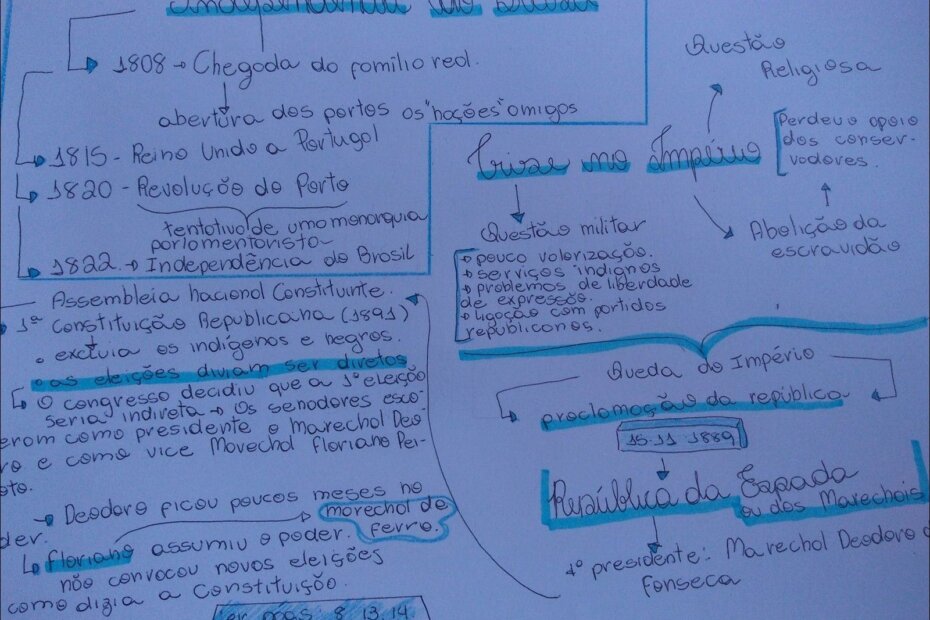 Independência do Brasil
1808 → Chegada da família real.
abertura dos portos as "nações" amigas
1815 - Reino Unido a Portugal
1820 - Revolução do Porto
tentativa de uma monarquia
parlamentarista
1822 → Independência do Brasil
Questão
Religiosa
Crise no Império
Perdeu o apoio
dos conser-
vadores.
Abolição da
escravidão
Questão militar
pouco valorização.
serviços indignos
problemas de liberdade
de expressão.
ligação com partidos
republicanos.
Queda do Império
proclamação da república
15.11 1889
República da Espada
ou dos Marechais
1º presidente: Marechal Deodoro
Fonseca
Assembleia nacional Constituinte.
1ª Constituição Republicana (1891)
excluia os indígenas e negros.
as eleições diviam ser diretas
O congresso decidiu que a 1ª eleição
seria indireta → Os senadores esco-
eram como presidente o Marechal Deo-
ro e como vice Marechal Floriano Pei-
oto.
Deodoro ficou poucos meses no
der.
marechal de
ferro.
Floriano assumiu o poder.
não convocou novas eleições
como dizia a Constituição.
8, 13, 14